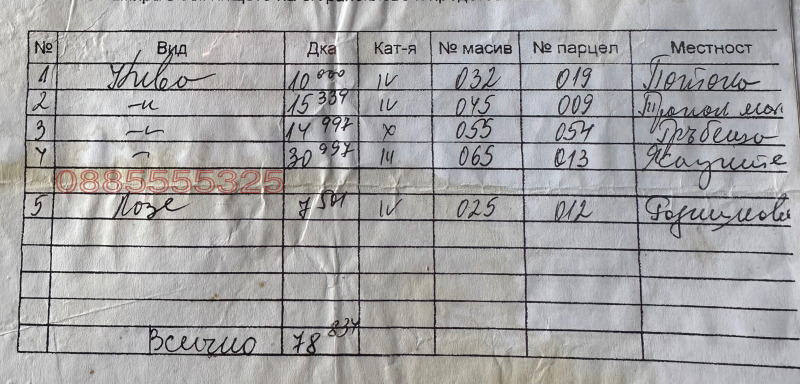 № Вид Дка Кат-я № масив № парцел Местност
1 Нива 10 000 IV 032 019 Потока
2 -"- 15 339 IV 045 009
3 -"- 14 997 X 055 054 Гръбеща
4 -"- 30 997 065 013
0885555325
5 Лозе 7 501 IV 025 012
Всичко 78 834